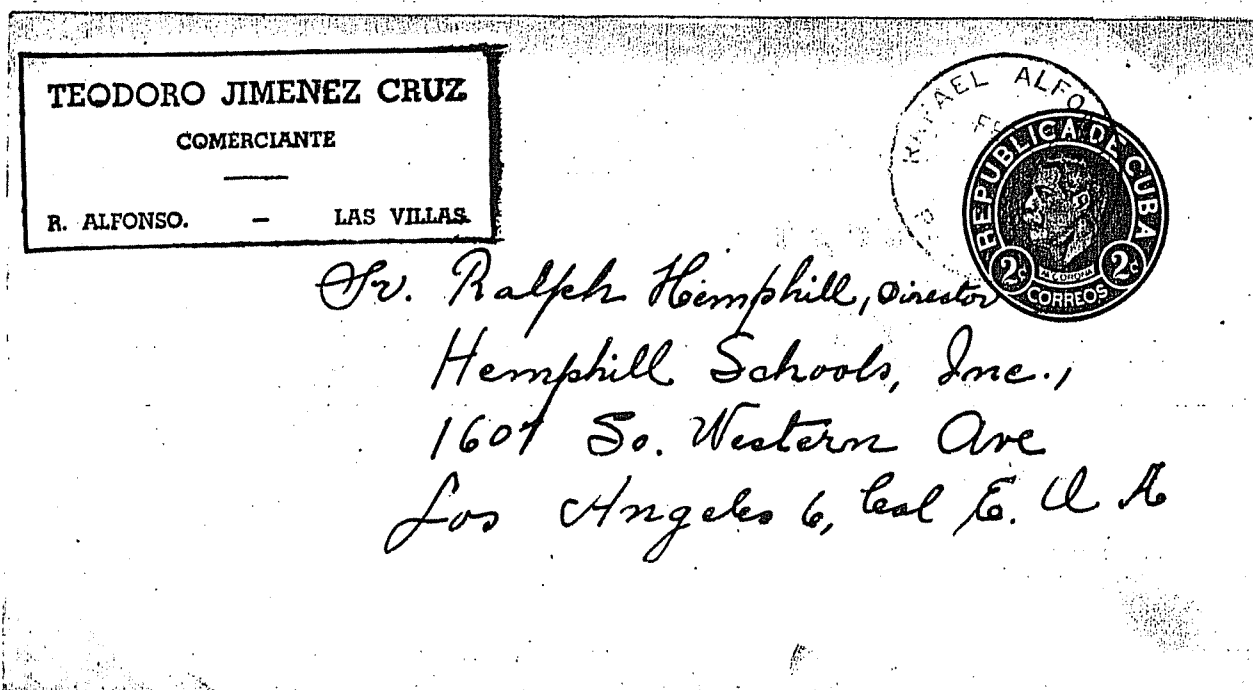 TEODORO JIMENEZ CRUZ
COMERCIANTE
R. ALFONSO. — LAS VILLAS.
RAFAEL ALFO
REPUBLICA DE CUBA
2c M CORONA 2c
CORREOS
Sr. Ralph Hemphill, Director
Hemphill Schools, Inc.,
1601 So. Western Ave
Los Angeles 6, Cal E. U A